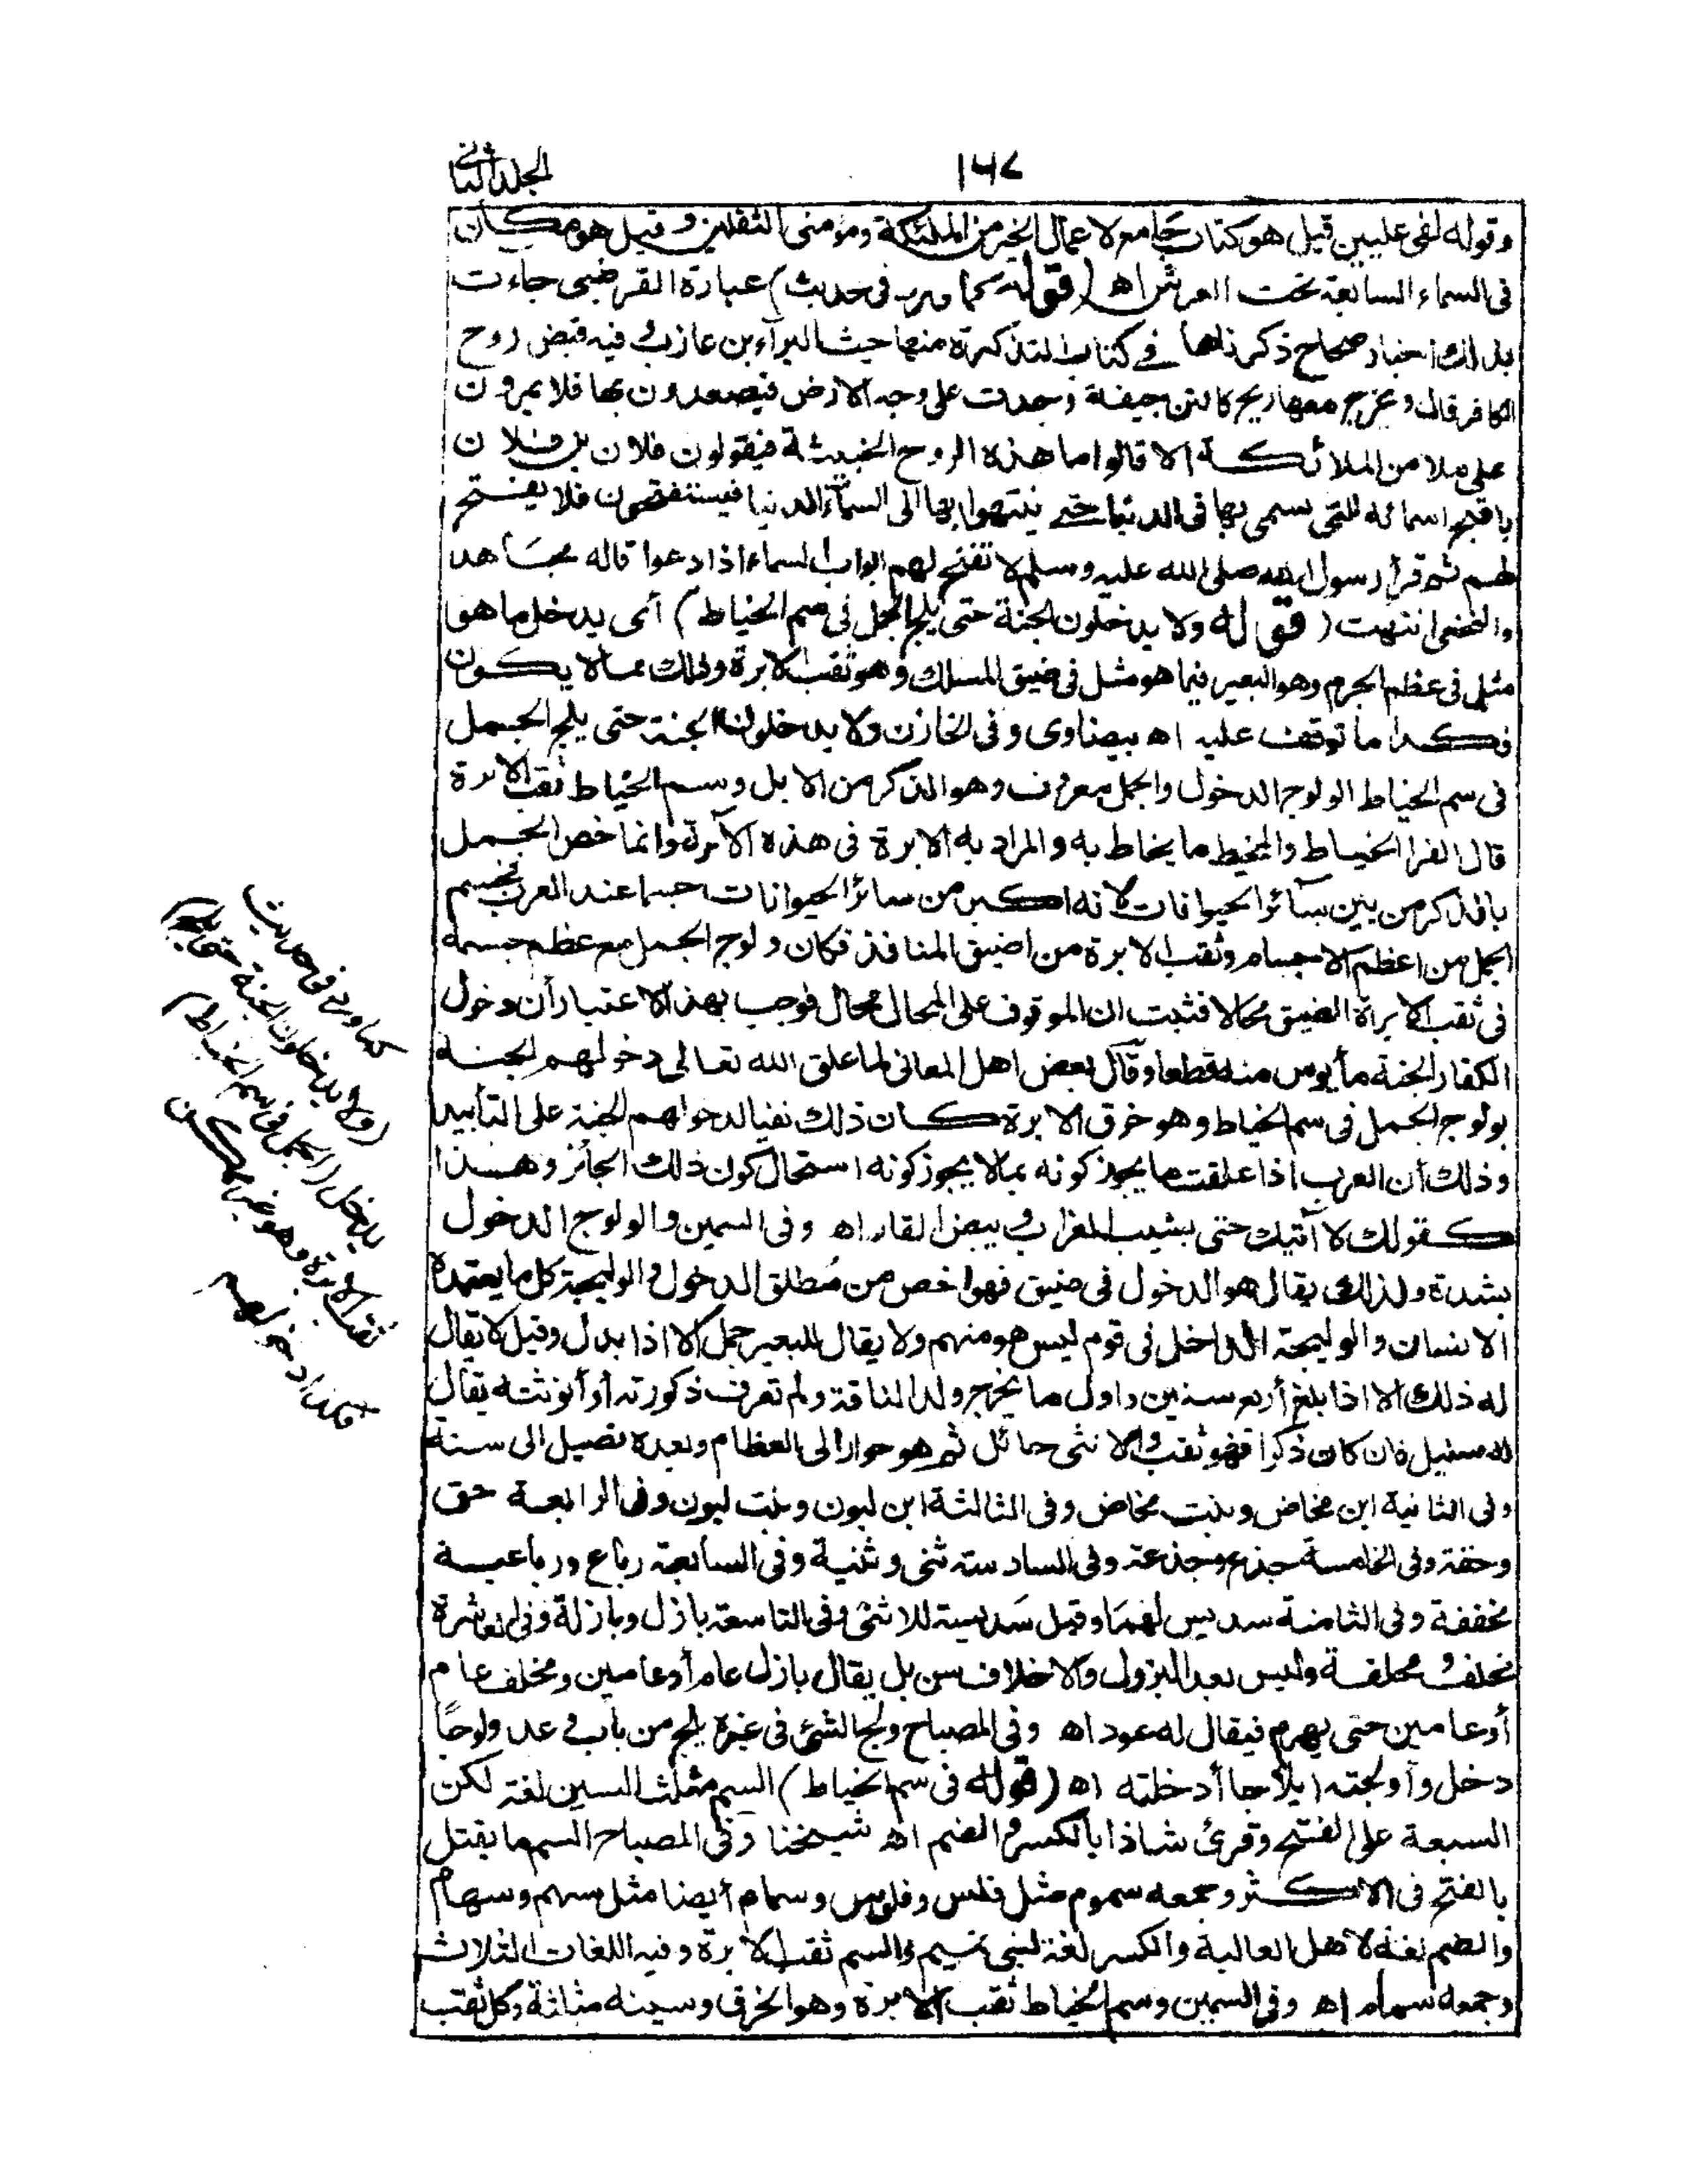 ١٦٧
الجلد الثاني
وقوله لفي عليين قيل هو كتاب جامع لاعمال الخير من الملئكة ومؤمنى الثقلين وقيل هو مكان
فى السماء السابعة تحت العرش اه (قوله كما ورد فى حديث) عبارة القرطبى جاءت
بذلك اخبار صحاح ذكرناها في كتاب التذكرة منها حديث البراء بن عازب وفيه قبض روح
الكافر قال ويخرج معها ريح كانتن جيفة وجدت على وجه الارض فيصعدون بها فلا يمرون
على ملا من الملائكة الا قالوا ما هذه الروح الخبيثة فيقولون فلان بن فلان
باقبح اسمائه التى يسمى بها فى الدنيا حتى ينتهوا بها الى السماء الدنيا فيستفتحون فلا يفتح
لهم ثم قرأ رسول الله صلى الله عليه وسلم لا تفتح لهم ابواب السماء اذا دعوا قاله مجاهد
والنخعى انتهت (قوله ولا يدخلون الجنة حتى يلج الجمل فى سم الخياط) أى يدخل ما هو
مثل فى عظم الجرم وهو البعير فيما هو مثل فى ضيق المسلك وهو ثقب الابرة وذلك مما لا يكون
فكذا ما توقف عليه اه بيضاوى وفى الخازن ولا يدخلون الجنة حتى يلج الجمل
فى سم الخياط الولوج الدخول والجمل معروف وهو الذكر من الابل وسم الخياط ثقب الابرة
قال الفرا الخياط والمخيط ما يخاط به والمراد به الابرة فى هذه الآية وانما خص الجمل
بالذكر من بين سائر الحيوانات لانه اكبر من سائر الحيوانات جسما عند العرب فجسم
الجمل من اعظم الاجسام وثقب الابرة من اضيق المنافذ فكان ولوج الجمل مع عظم جسمه
فى ثقب الابرة الضيق محالا فثبت ان الموقوف على المحال محال فوجب بهذا الاعتبار أن دخول
الكفار الجنة مأيوس منه قطعا وقال بعض اهل المعانى لما علق الله تعالى دخولهم الجنة
بولوج الجمل فى سم الخياط وهو خرق الابرة كان ذلك نفيا لدخولهم الجنة على التأبيد
وذلك أن العرب اذا علقت ما يجوز كونه بما لا يجوز كونه استحال كون ذلك الجائز وهذا
كقولك لا آتيك حتى يشيب الغراب ويبيض القار اه وفى السمين والولوج الدخول
بشدة ولذلك يقال هو الدخول فى ضيق فهو اخص من مطلق الدخول والوليجة كل ما يعتمده
الانسان والوليجة الداخل فى قوم ليس هو منهم ولا يقال للبعير جمل الا اذا بدل وقيل لا يقال
له ذلك الا اذا بلغ أربع سنين واول ما يخرج ولد الناقة ولم تعرف ذكورته أو أنوثته يقال
له سليل فان كان ذكرا فهو ثقب والانثى حائل ثم هو حوار الى العظام وبعده فصيل الى سنة
وفى الثانية ابن مخاض وبنت مخاض وفى الثالثة ابن لبون وبنت لبون وفى الرابعة حق
وحقة وفى الخامسة جذع وجذعة وفى السادسة ثنى وثنية وفى السابعة رباع ورباعية
مخففة وفى الثامنة سديس لهما وقيل سديسة للانثى وفى التاسعة بازل وبازلة وفى العاشرة
مخلف ومخلفة وليس بعد البزول والاخلاف سن بل يقال بازل عام أو عامين ومخلف عام
أو عامين حتى يهرم فيقال له عود اه وفى المصباح ولج الشئ فى غيره يلج من باب وعد ولوجا
دخل وأولجته ايلاجا أدخلته اه (قوله فى سم الخياط) السم مثلث السين لغة لكن
السبعة على الفتح وقرئ شاذا بالكسر والضم اه شيخنا وفى المصباح السم ما يقتل
بالفتح فى الاكثر وجمعه سموم مثل فلس وفلوس وسمام أيضا مثل سهم وسهام
والضم لغة لاهل العالية والكسر لغة لبنى تميم والسم ثقب الابرة وفيه اللغات الثلاث
وجمعه سمام اه وفى السمين وسم الخياط ثقب الابرة وهو الخرق وسينه مثلثة وكل ثقب
كما ورد فى حديث
(ولا يدخلون الجنة حتى يلج)
يدخل (الجمل فى سم الخياط)
ثقب الابرة وهو غير ممكن
فكذا دخولهم